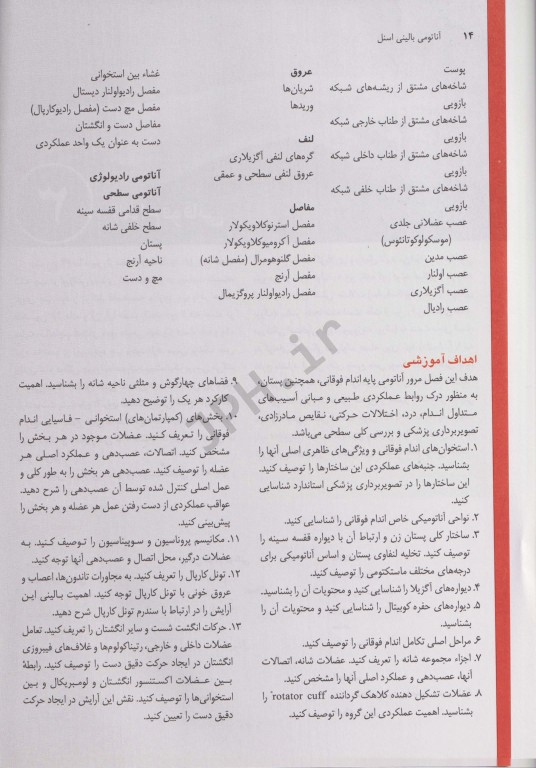 ۱۴ آناتومی بالینی اسنل
پوست
شاخه‌های مشتق از ریشه‌های شبکه
بازویی
شاخه‌های مشتق از طناب خارجی شبکه
بازویی
شاخه‌های مشتق از طناب داخلی شبکه
بازویی
شاخه‌های مشتق از طناب خلفی شبکه
بازویی
عصب عضلانی جلدی
(موسکولوکوتانئوس)
عصب مدین
عصب اولنار
عصب آگزیلاری
عصب رادیال
عروق
شریان‌ها
وریدها
لنف
گره‌های لنفی آگزیلاری
عروق لنفی سطحی و عمقی
مفاصل
مفصل استرنوکلاویکولار
مفصل آکرومیوکلاویکولار
مفصل گلنوهومرال (مفصل شانه)
مفصل آرنج
مفصل رادیواولنار پروگزیمال
غشاء بین استخوانی
مفصل رادیواولنار دیستال
مفصل مچ دست (مفصل رادیوکارپال)
مفاصل دست و انگشتان
دست به عنوان یک واحد عملکردی
آناتومی رادیولوژی
آناتومی سطحی
سطح قدامی قفسه سینه
سطح خلفی شانه
پستان
ناحیه آرنج
مچ و دست
اهداف آموزشی
هدف این فصل مرور آناتومی پایه اندام فوقانی، همچنین پستان،
به منظور درک روابط عملکردی طبیعی و مبانی آسیب‌های
متداول اندام، درد، اختلالات حرکتی، نقایص مادرزادی،
تصویربرداری پزشکی و بررسی کلی سطحی می‌باشد.
۱. استخوان‌های اندام فوقانی و ویژگی‌های ظاهری اصلی آنها را
بشناسید. جنبه‌های عملکردی این ساختارها را توصیف کنید.
این ساختارها را در تصویربرداری پزشکی استاندارد شناسایی
کنید.
۲. نواحی آناتومیکی خاص اندام فوقانی را شناسایی کنید.
۳. ساختار کلی پستان زن و ارتباط آن با دیواره قفسه سینه را
توصیف کنید. تخلیه لنفاوی پستان و اساس آناتومیکی برای
درجه‌های مختلف ماستکتومی را توصیف کنید.
۴. دیواره‌های آگزیلا را شناسایی کنید و محتویات آن را بشناسید.
۵. دیواره‌های حفره کوبیتال را شناسایی کنید و محتویات آن را
بشناسید.
۶. مراحل اصلی تکامل اندام فوقانی را توصیف کنید.
۷. اجزاء مجموعه شانه را تعریف کنید. عضلات شانه، اتصالات
آنها، عصب‌دهی و عملکرد اصلی آنها را مشخص کنید.
۸. عضلات تشکیل دهنده کلاهک گرداننده "rotator cuff" را
بشناسید. اهمیت عملکردی این گروه را توصیف کنید.
۹. فضاهای چهارگوش و مثلثی ناحیه شانه را بشناسید. اهمیت
کارکرد هر یک را توضیح دهید.
۱۰. بخش‌های (کمپارتمان‌های) استخوانی - فاسیایی اندام
فوقانی را تعریف کنید. عضلات موجود در هر بخش را
مشخص کنید. اتصالات، عصب‌دهی و عملکرد اصلی هر
عضله را توصیف کنید. عصب‌دهی هر بخش را به طور کلی و
عمل اصلی کنترل شده توسط آن عصب‌دهی را شرح دهید.
عواقب عملکردی از دست رفتن عمل هر عضله و هر بخش را
پیش‌بینی کنید.
۱۱. مکانیسم پروناسیون و سوپیناسیون را توصیف کنید. به
عضلات درگیر، محل اتصال و عصب‌دهی آنها توجه کنید.
۱۲. تونل کارپال را تعریف کنید. به مجاورات تاندون‌ها، اعصاب و
عروق خونی با تونل کارپال توجه کنید. اهمیت بالینی این
آرایش را در ارتباط با سندرم تونل کارپال شرح دهید.
۱۳. حرکات انگشت شست و سایر انگشتان را تعریف کنید. تعامل
عضلات داخلی و خارجی، رتیناکولوم‌ها و غلاف‌های فیبروزی
انگشتان در ایجاد حرکت دقیق دست را توصیف کنید. رابطهٔ
بین عضلات اکستنسور انگشتان و لومبریکال و بین
استخوانی‌ها را توصیف کنید. نقش این آرایش در ایجاد حرکت
دقیق دست را تعیین کنید.
3PH.ir